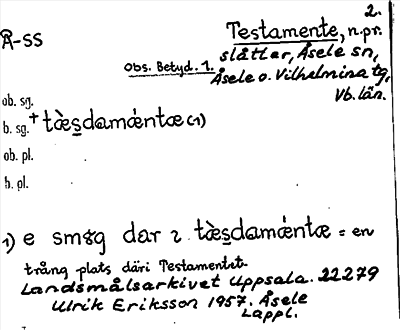 2.
Å-SS
Testamente, n.pr.
slåtter, Åsele sn,
Obs. Betyd. 1.
Åsele o. Vilhelmina tg,
Vb. län.
ob. sg.
b. sg. + tæ̀s̲damǽntæ (1)
ob. pl.
b. pl.
1) e smɞg dar ɿ tæ̀s̲damǽntæ = en
trång plats däri Testamentet.
Landsmålsarkivet Uppsala. 22279
Ulrik Eriksson 1957. Åsele
Lappl.